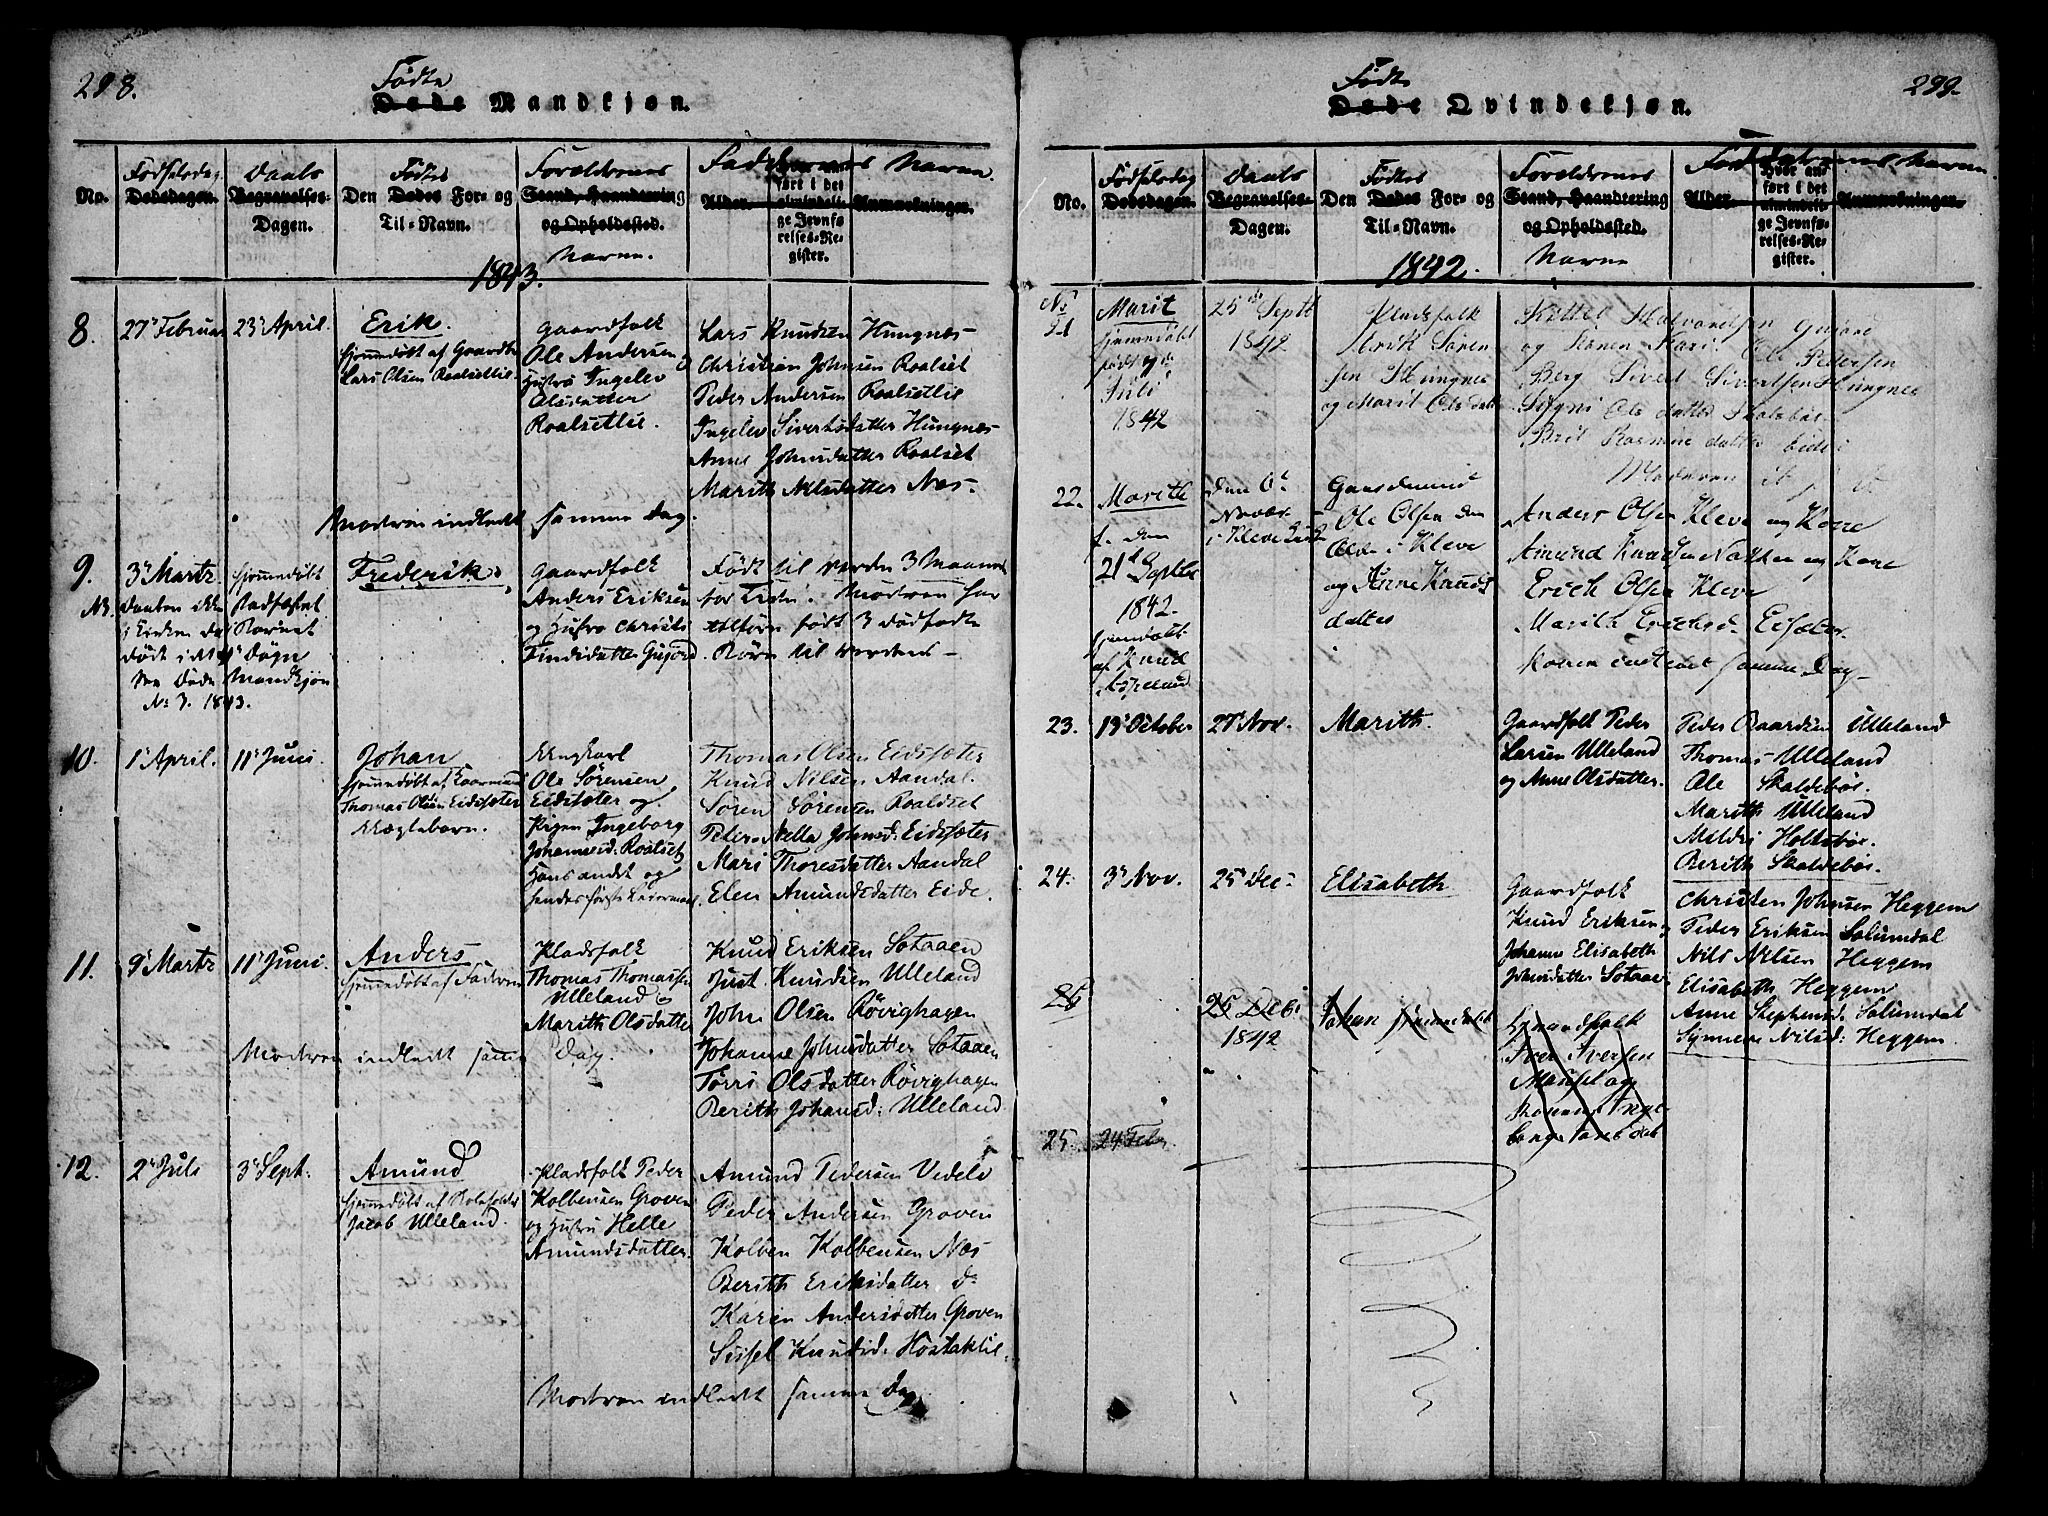 298.
Fødte
Døde Mandkjøn.
No.
Fødselsdag
Dødsdagen.
Daabs
Begravelses-
Dagen.
Fødtes
Den Dødes For- og
Til-Navn.
Forældrenes
Stand, Haandtering
og Opholdssted.
Navne.
Faddernes Navne.
Alder.
Hvor an-
ført i det
almindeli-
ge Jevnfø-
relses-Re-
gister.
Anmærkninger.
1843.
8.
27de Februar
23de April.
Erik.
hjemmedøbt af
Lars Olsen Roalsetlie.
Gaardfolk
Ole Andersen
Hustru Ingelev
Olsdatter
Roalsetlie.
Lars Knudsen Hungnes
Christian Johnsen Roalset
Peder Andersen Roalsetlie
Ingelev Sivertsdatter Hungnes
Anne Johnsdatter Roalset
Marith Nilsdatter Næs.
Moderen indledt samme Dag.
9.
3de Martz
Daaben ikke
i Kirken da
Død
No 3. 1843.
hjemmedøbt
Barnet
Døgn
Mandkjøn
Frederik.
Gaardfolk
Anders Eriksen
og Hustru Christi
Findsdatter Gujord.
Født til Verden 3 Maaneder
for tidlig. Moderen har
tilforn født 3 dødfødte
Børn til Verden
10.
1de April.
11te Juni
Johan
hjemmedøbt af
Thomas Olsen Eidsæter
Ægtebarn.
Ungkarl
Ole Sørensen
Eidsæter og
Pigen Ingeborg
Johannesd. Roalset
Hans andet og
hendes første Leiermaal.
Thomas Olsen Eidsæter
Knud Nilsen Aandal.
Søren Sørensen Roaldset
Peternella Johnsd: Eidsæter
Mari Thoresdatter Aandal
Elen Amundsdatter Eide.
11.
9de Martz
11te Juni.
Anders
hjemmedøbt af Faderen
Pladsfolk
Thomas Thomassen
Ulleland
Marith Olsdatter
Knud Eriksen Sotaaen
Just Knudsen Ulleland
John Olsen Røvighagen
Johanne Johnsdatter Sotaaen
Torri Olsdatter Røvighagen
Berith Johansd: Ulleland
Moderen indledt samme Dag.
12.
2de Juli
3de Sept.
Amund
hjemmedøbt af
Jacob Ulleland.
Pladsfolk Peder
Kolbensen Groven
og Hustru Helle
Amundsdatter
Amund Pedersen Vedele
Peder Andersen Groven
Kolben Kolbensen Næs
Berith Eriksdatter do
Karen Andersdatter Groven
Sissel Knudsd. Hostaklie
Moderen indledt samme Dag.
299.
Fødte
Døde Qvindekjøn.
No.
Fødselsdag
Dødsdagen.
Daabs
Begravelses-
Dagen.
Fødtes
Den Dødes For- og
Til-Navn.
Forældrenes
Stand, Haandtering
og Opholdssted.
Navne
Faddernes Navne.
Alder.
Hvor an-
ført i det
almindeli-
ge Jevnfø-
relses-Re-
gister.
Anmærkninger.
1842.
No
21
Marit
hjemmedøbt
født 7de
Juli
1842
25de Sept
1842
Pladsfolk
Erik Søren
sen Hungnes
og Marit Olsdatt
Kittel Halvordsen Gujord
og Kari. Ole Pedersen
Berg Sivert Sivertsen Hungnes
Signi Ols datter Skalebøe
Brit Rasmus datter Eide
Moderen
22.
Marith
f. den
21de Septbr
1842.
hjemdøbt
af Knud
den 6te
Novbr.
i Kleve Kirke
Gaardmand
Ole Olsen den
Olde i Kleve
og Anne Knuds
datter
Anders Olsen Kleve og Kone
Amund Knudsen Nakken og Kone
Erich Olsen Kleve
Marith Erichsd. Eisæter
Konen indledet samme Dag
23.
19de October
27de Nov.
Marith.
Gaardfolk Peder
Larsen Ulleland
og Anne Olsdatter.
Peder Baardsen Ulleland
Thomas Ulleland
Ole Skaldebøe.
Marith Ulleland
Meldri Holtebøe
Berith Skaldebøe.
24.
3de Nov.
25de Dec.
Elisabeth
Gaardfolk
Knud Eriksen
Johanne Elisabeth
Johnsdatter Sotaae
Christen Johnsen Heggem
Peder Eriksen Solumdal
Nils Nilsen Heggem
Elisabeth Heggem
Anne Stephensd. Solumdal
Synneve Nilsd: Heggem.
25
25 Deci
1842
Johan hjemmedøbt
Gaardfolk
Iver Iversen
og
Konen Inge
borg
25.
24 Febr